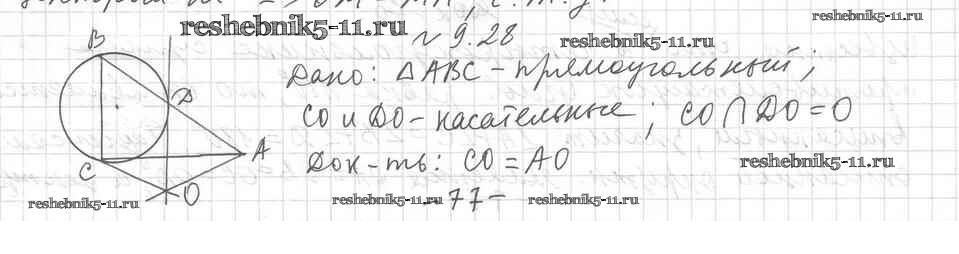 reshebnik5-11.ru
reshebnik5-11.ru
№ 9.28
reshebnik5-11.ru
B
Дано: △ABC - прямоугольный;
D
CO и DO - касательные; CO ∩ DO = O
A
Док-ть: CO = AO
reshebnik5-11.ru
C
O
reshebnik5-11.ru
reshebnik5-11.ru
- 77 -
reshebnik5-11.ru